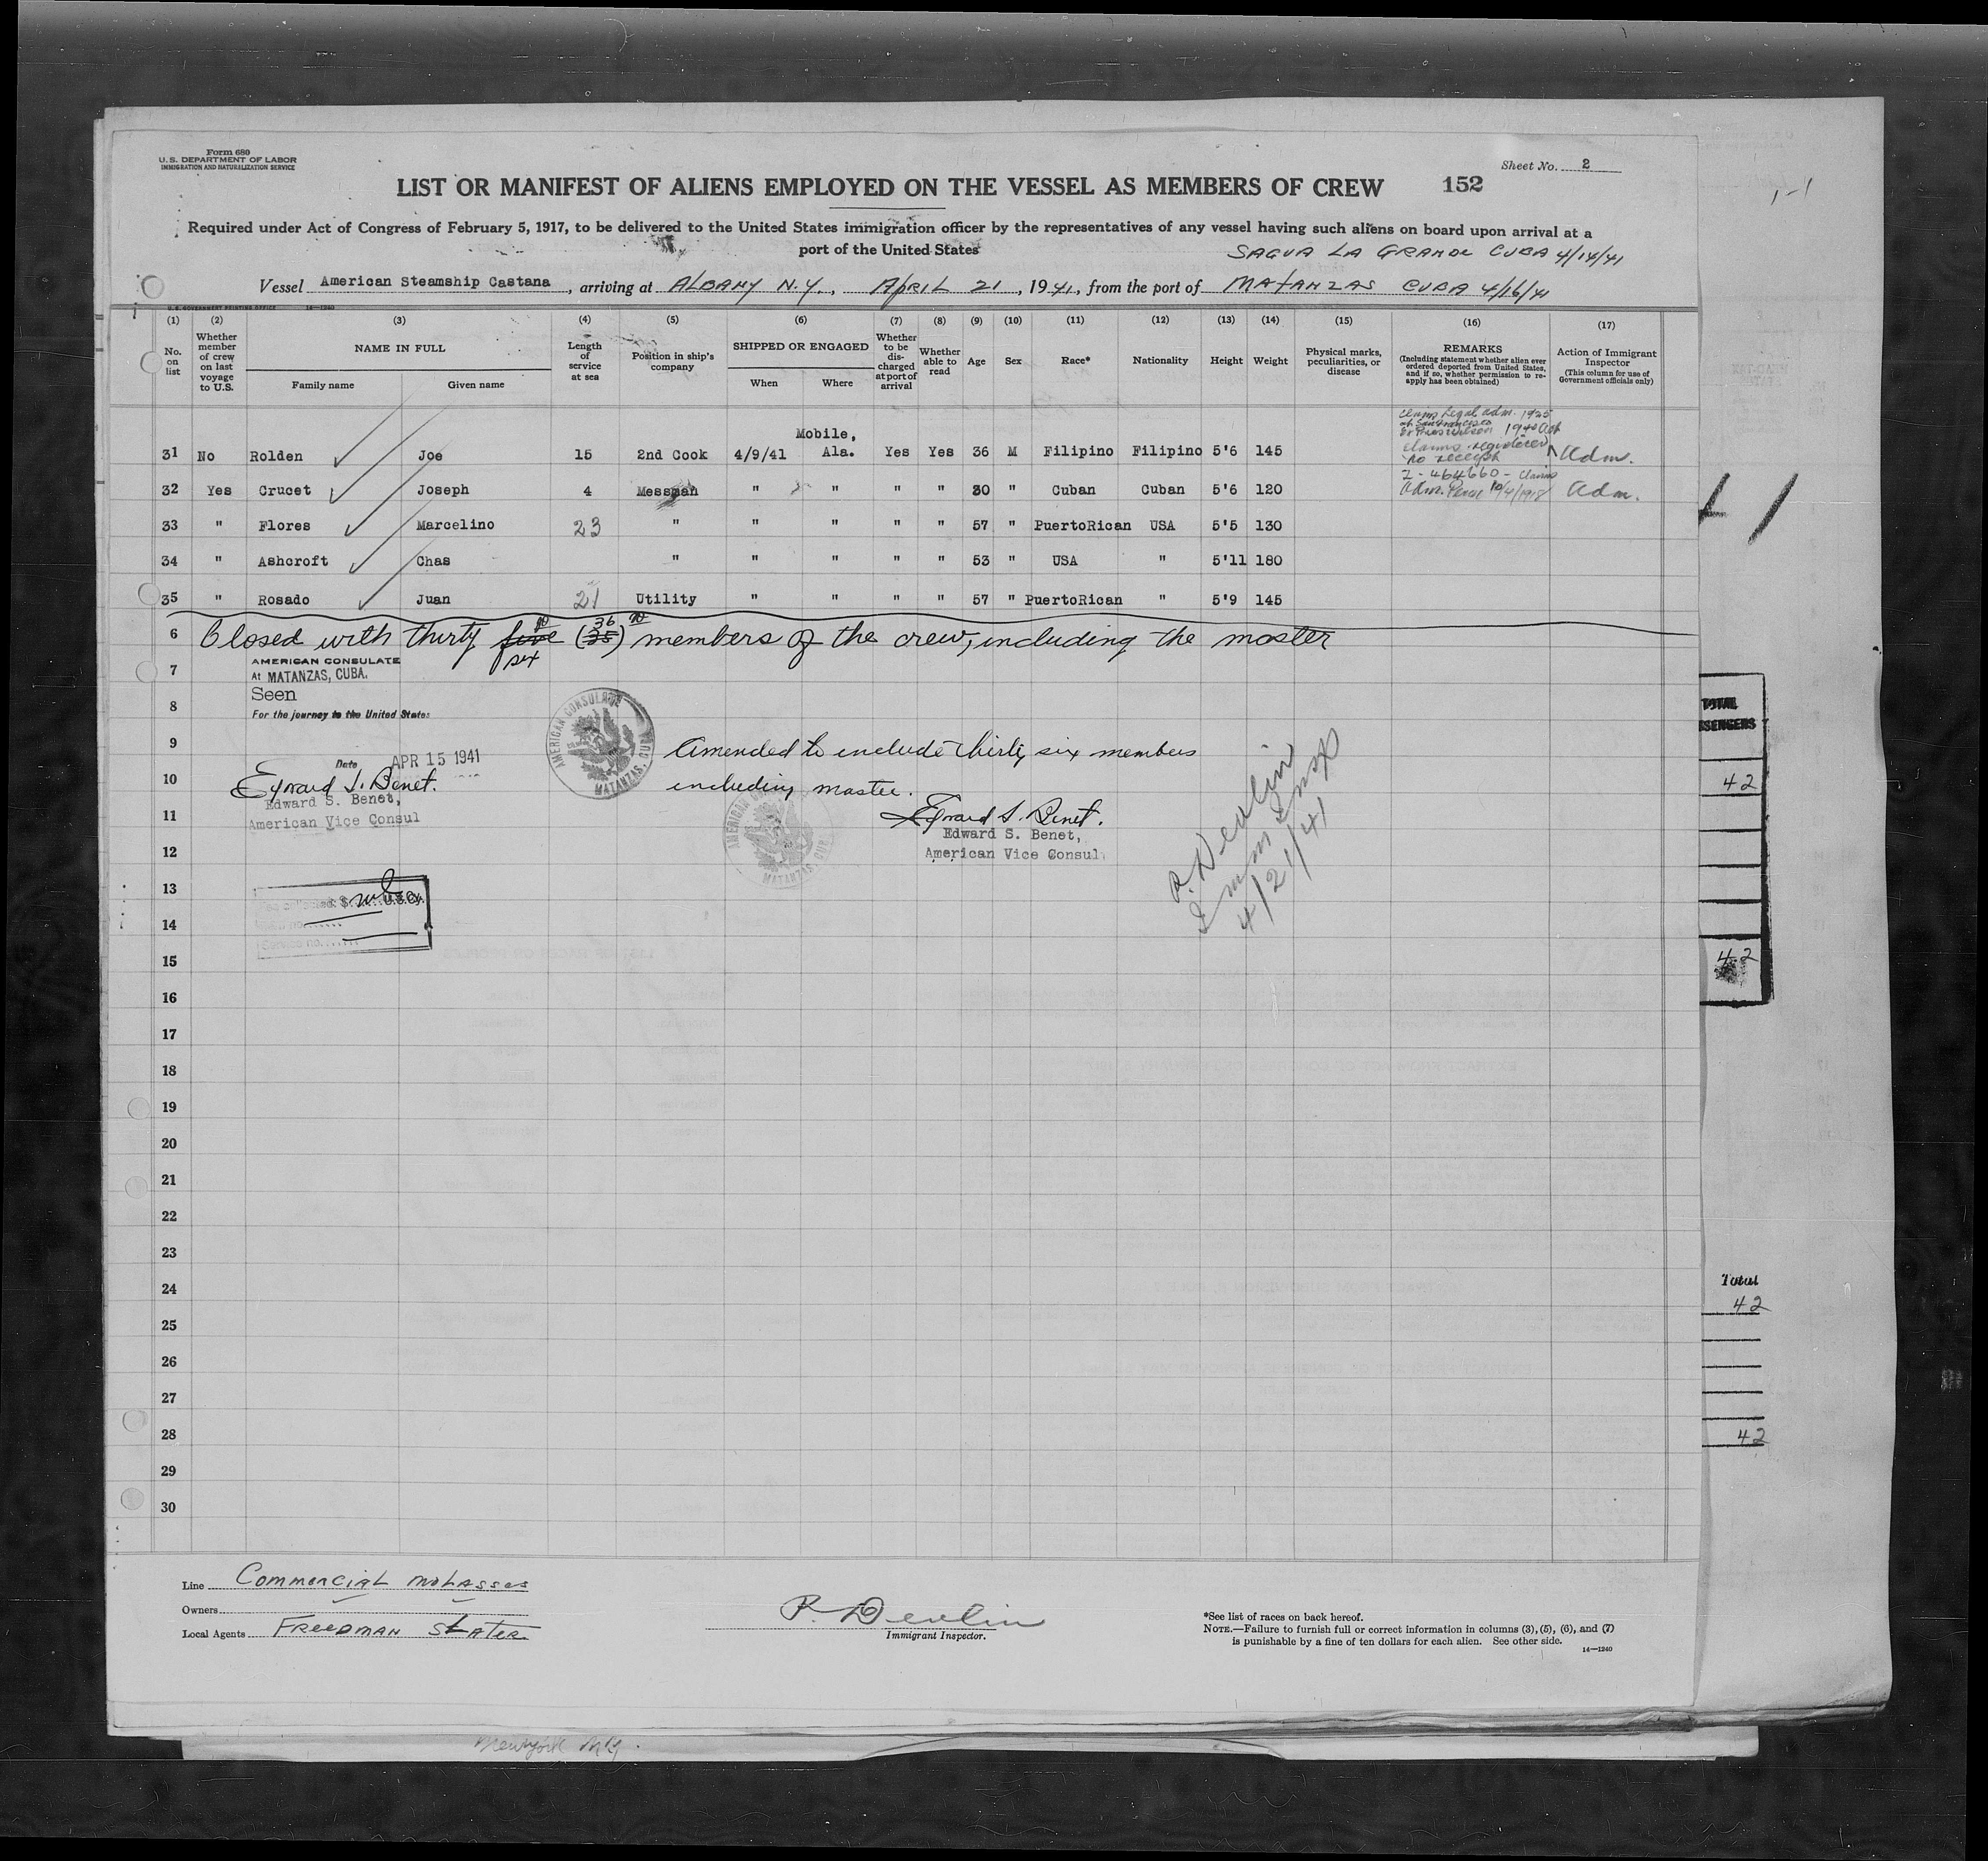 Form 680
U. S. DEPARTMENT OF LABOR
IMMIGRATION AND NATURALIZATION SERVICE
Sheet No. 2
LIST OR MANIFEST OF ALIENS EMPLOYED ON THE VESSEL AS MEMBERS OF CREW 152
Required under Act of Congress of February 5, 1917, to be delivered to the United States immigration officer by the representatives of any vessel having such aliens on board upon arrival at a
port of the United States
SAGUA LA GRANDE CUBA 4/14/41
Vessel American Steamship Castana, arriving at ALBANY N.Y., APRIL 21, 1941, from the port of MATANZAS CUBA 4/16/41
U. S. GOVERNMENT PRINTING OFFICE 14—1240
(1) (2) (3) (4) (5) (6) (7) (8) (9) (10) (11) (12) (13) (14) (15) (16) (17)
No. on list
Whether member of crew on last voyage to U.S.
NAME IN FULL
Family name
Given name
Length of service at sea
Position in ship's company
SHIPPED OR ENGAGED
When
Where
Whether to be discharged at port of arrival
Whether able to read
Age
Sex
Race*
Nationality
Height
Weight
Physical marks, peculiarities, or disease
REMARKS
(Including statement whether alien ever ordered deported from United States, and if so, whether permission to reapply has been obtained)
Action of Immigrant Inspector
(This column for use of Government officials only)
Claims Legal adm. 1925
at San Francisco
1940 Act
claims registered
no receipt
31 No Rolden Joe 15 2nd Cook 4/9/41 Mobile, Ala. Yes Yes 36 M Filipino Filipino 5'6 145 Adm.
2-464660 - Claims
32 Yes Crucet Joseph 4 Messman " " " " 30 " Cuban Cuban 5'6 120 Adm. 10/4/1918 Adm.
33 " Flores Marcelino 23 " " " " " 57 " PuertoRican USA 5'5 130
34 " Ashcroft Chas " " " " " 53 " USA " 5'11 180
35 " Rosado Juan 21 Utility " " " " 57 " PuertoRican " 5'9 145
6 Closed with thirty five six (35) 36 members of the crew, including the master
7 AMERICAN CONSULATE
At MATANZAS, CUBA.
Seen
8 For the journey to the United States
AMERICAN CONSULATE MATANZAS, CUBA
9 Amended to include thirty six members
Date APR 15 1941
10 including master.
Edward S. Benet.
Edward S. Benet,
American Vice Consul
11 Edward S. Benet.
Edward S. Benet,
12 American Vice Consul
AMERICAN MATANZAS CUBA
P. Devlin
Imm Insp
4/21/41
13
14
Service no.
15
16
17
18
19
20
21
22
23
24
25
26
27
28
29
30
TOTAL
42
42
Total
42
42
Line Commercial Molasses
Owners
Local Agents FREEDMAN SLATER
P. Devlin
Immigrant Inspector.
*See list of races on back hereof.
NOTE.—Failure to furnish full or correct information in columns (3), (5), (6), and (7)
is punishable by a fine of ten dollars for each alien. See other side.
14—1240
New York NY.